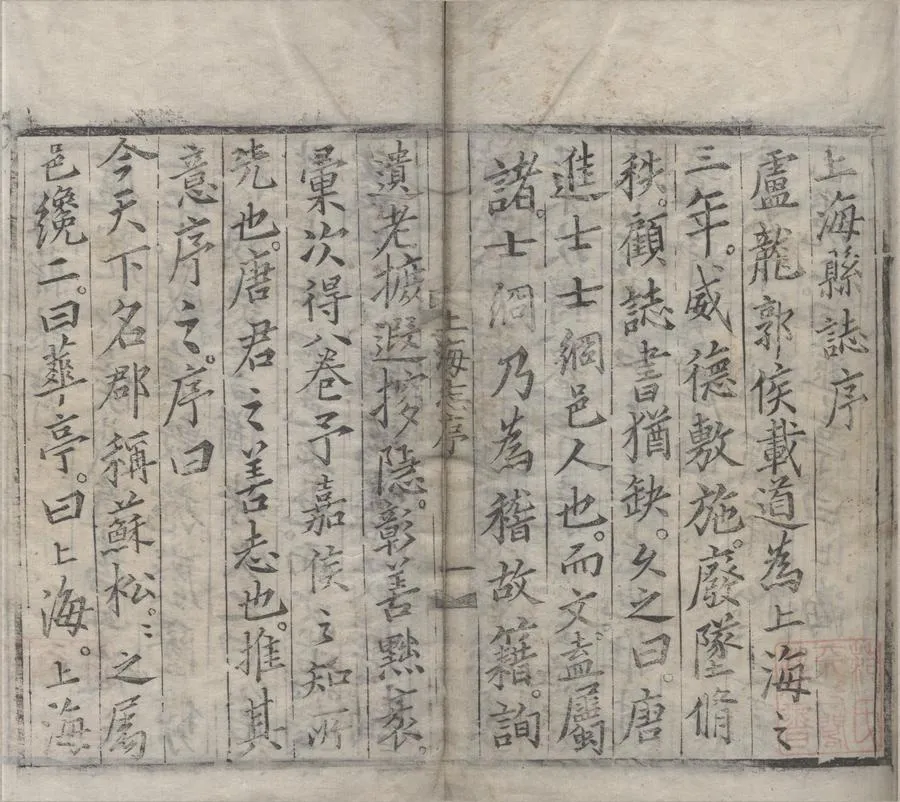 上海縣誌序
盧龍郭侯載道為上海之
三年。威德敷施。廢墜脩
秩。顧誌書猶缺。久之曰。唐
進士士綱邑人也。而文盍屬
諸。士綱乃為稽故籍。詢
上海志序
一
遺老摭遐㧢隱。彰善黜衺。
彙次得八卷予嘉侯之知所
先也。唐君之善志也。推其
意序之。序曰
今天下名郡稱蘇松。〻之属
邑纔二。曰華亭。曰上海。上海